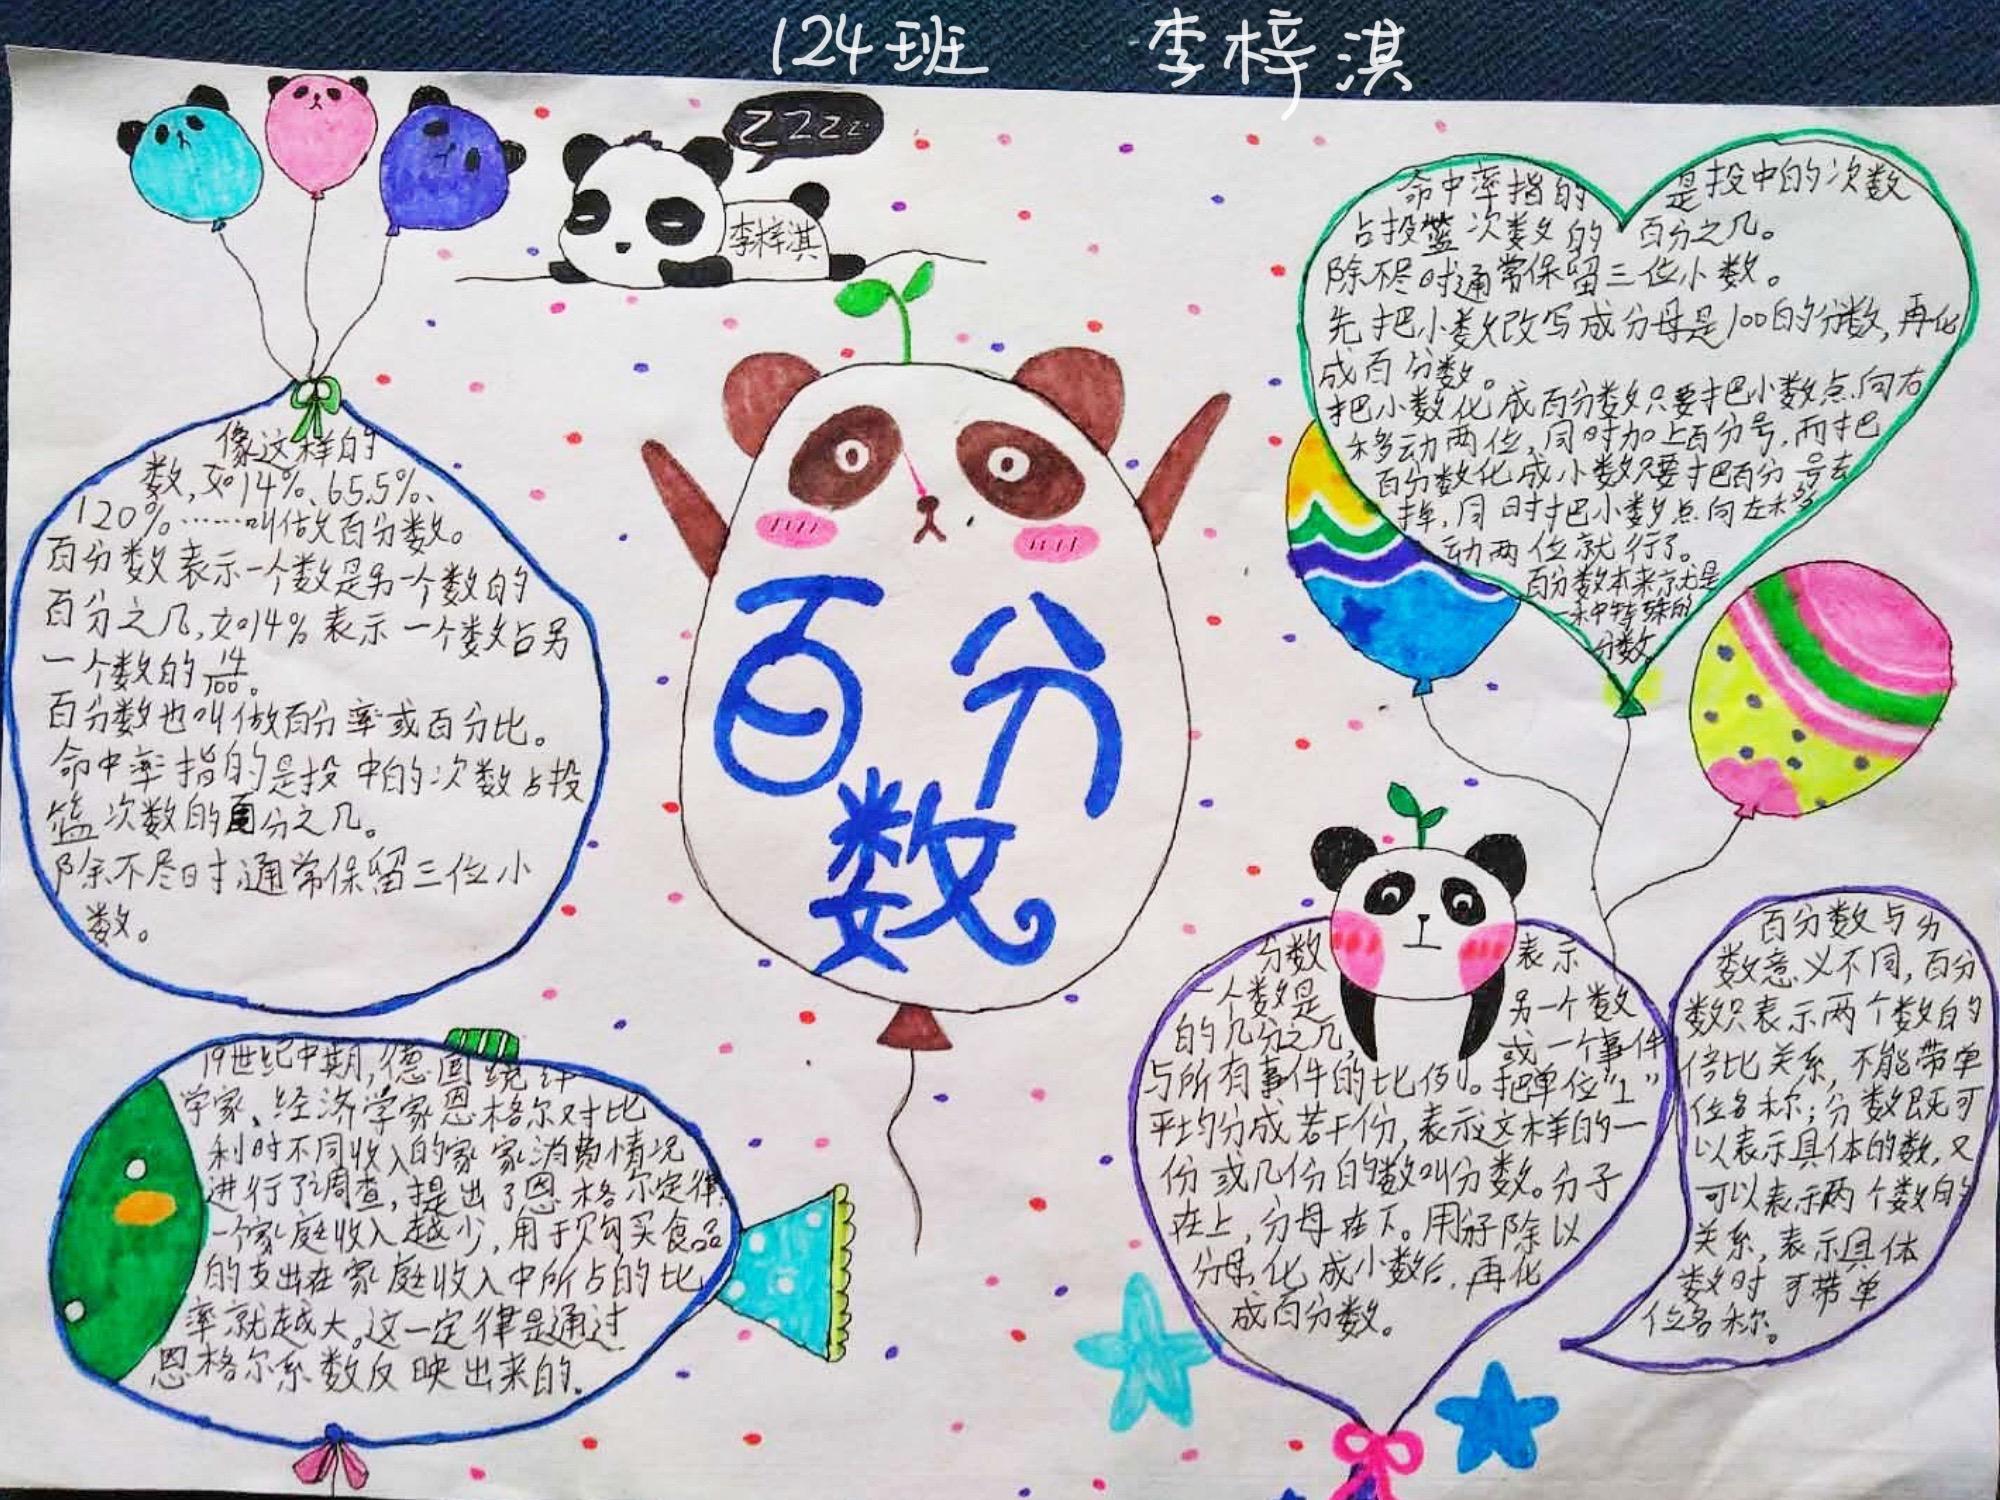 124班 李梓淇
ZZZZ
李梓淇
像这样的
数,如14%、65.5%、
120%……叫做百分数。
百分数表示一个数是另一个数的
百分之几,如14%表示一个数占另
一个数的14/100。
百分数也叫做百分率或百分比。
命中率指的是投中的次数占投
篮次数的百分之几。
除不尽时,通常保留三位小
数。
百分
数
命中率指的是投中的次数
占投篮次数的百分之几。
除不尽时通常保留三位小数。
先把小数改写成分母是100的分数,再化
成百分数。
把小数化成百分数只要把小数点向右
移动两位,同时加上百分号,而把
百分数化成小数只要把百分号去
掉,同时把小数点向左移
动两位就行了。
百分数本来就是
一种特殊的
分数
19世纪中期,德国统计
学家、经济学家恩格尔对比
利时不同收入的家家消费情况
进行了调查,提出了恩格尔定律:
一个家庭收入越少,用于购买食品
的支出在家庭收入中所占的比
率就越大。这一定律是通过
恩格尔系数反映出来的.
分数表示
一个数是另一个数
的几分之几,或一个事件
与所有事件的比例。把单位“1”
平均分成若干份,表示这样的一
份或几份的数叫分数。分子
在上,分母在下。用分子除以
分母,化成小数后,再化
成百分数。
百分数与分
数意义不同,百分
数只表示两个数的
倍比关系,不能带单
位名称;分数既可
以表示具体的数,又
可以表示两个数的
关系,表示具体
数时可带单
位名称。